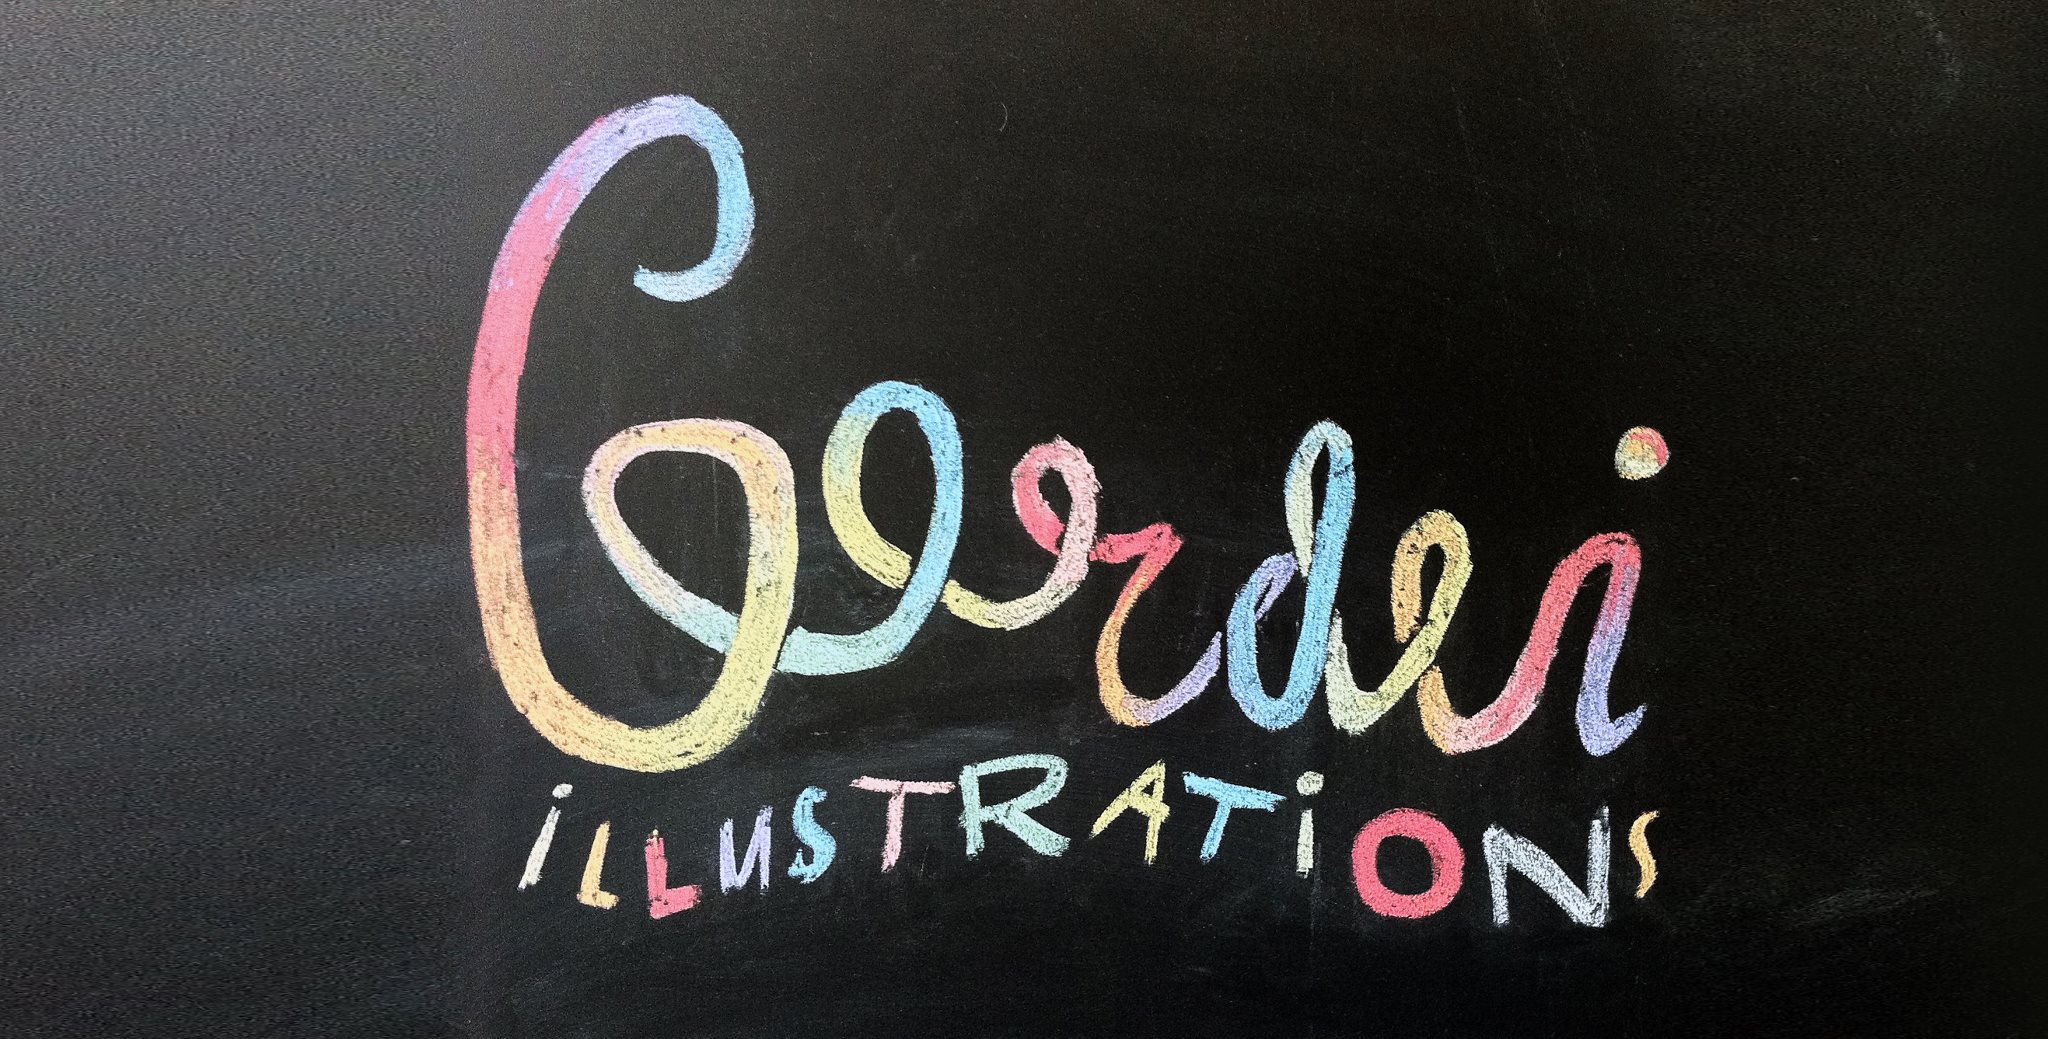 Gerdei
iLLUSTRATiONS